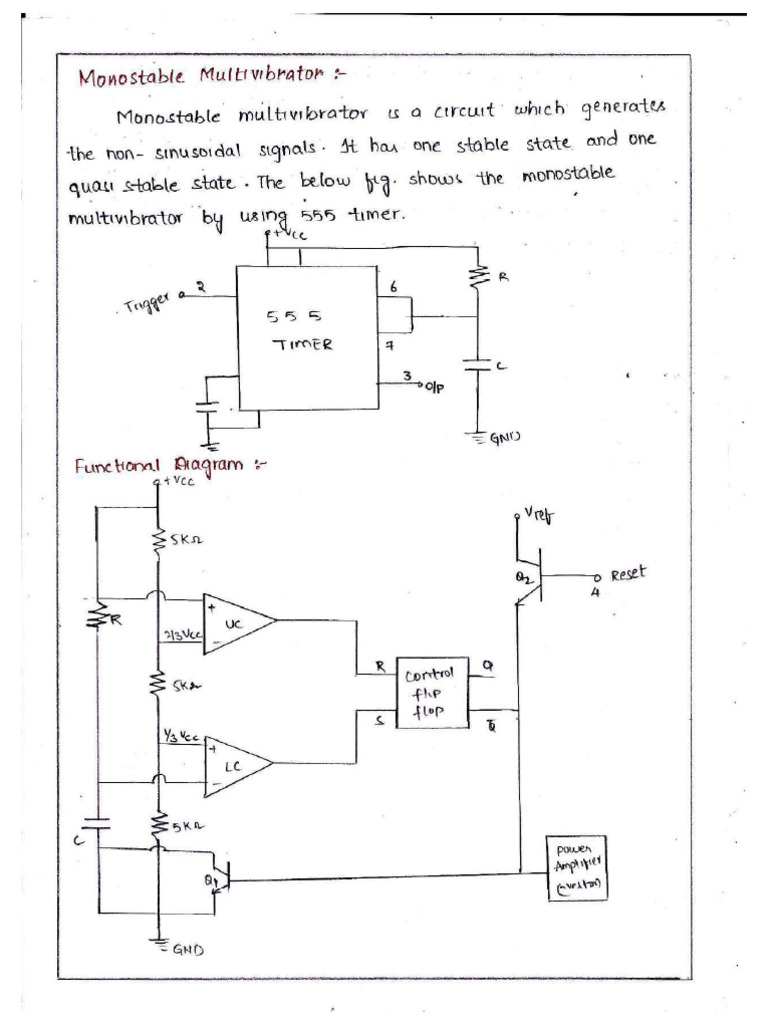 Monostable Multivibrator :-
Monostable multivibrator is a circuit which generates
the non- sinusoidal signals. It has one stable state and one
quasi stable state. The below fig. shows the monostable
multivibrator by using 555 timer.
+Vcc
Trigger 2
555
TIMER
6
7
3 O/P
R
C
GND
Functional Diagram :-
+Vcc
5KΩ
R
2/3Vcc
+
-
UC
5KΩ
1/3 Vcc
+
-
LC
C
5KΩ
Q1
GND
R
S
Control
flip
flop
Q
Q̅
Vref
Q2
Reset
4
Power
Amplifier